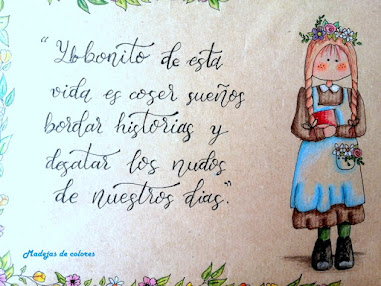 “Y lo bonito de esta
vida es coser sueños
bordar historias y
desatar los nudos
de nuestros dias.”
Madejas de colores